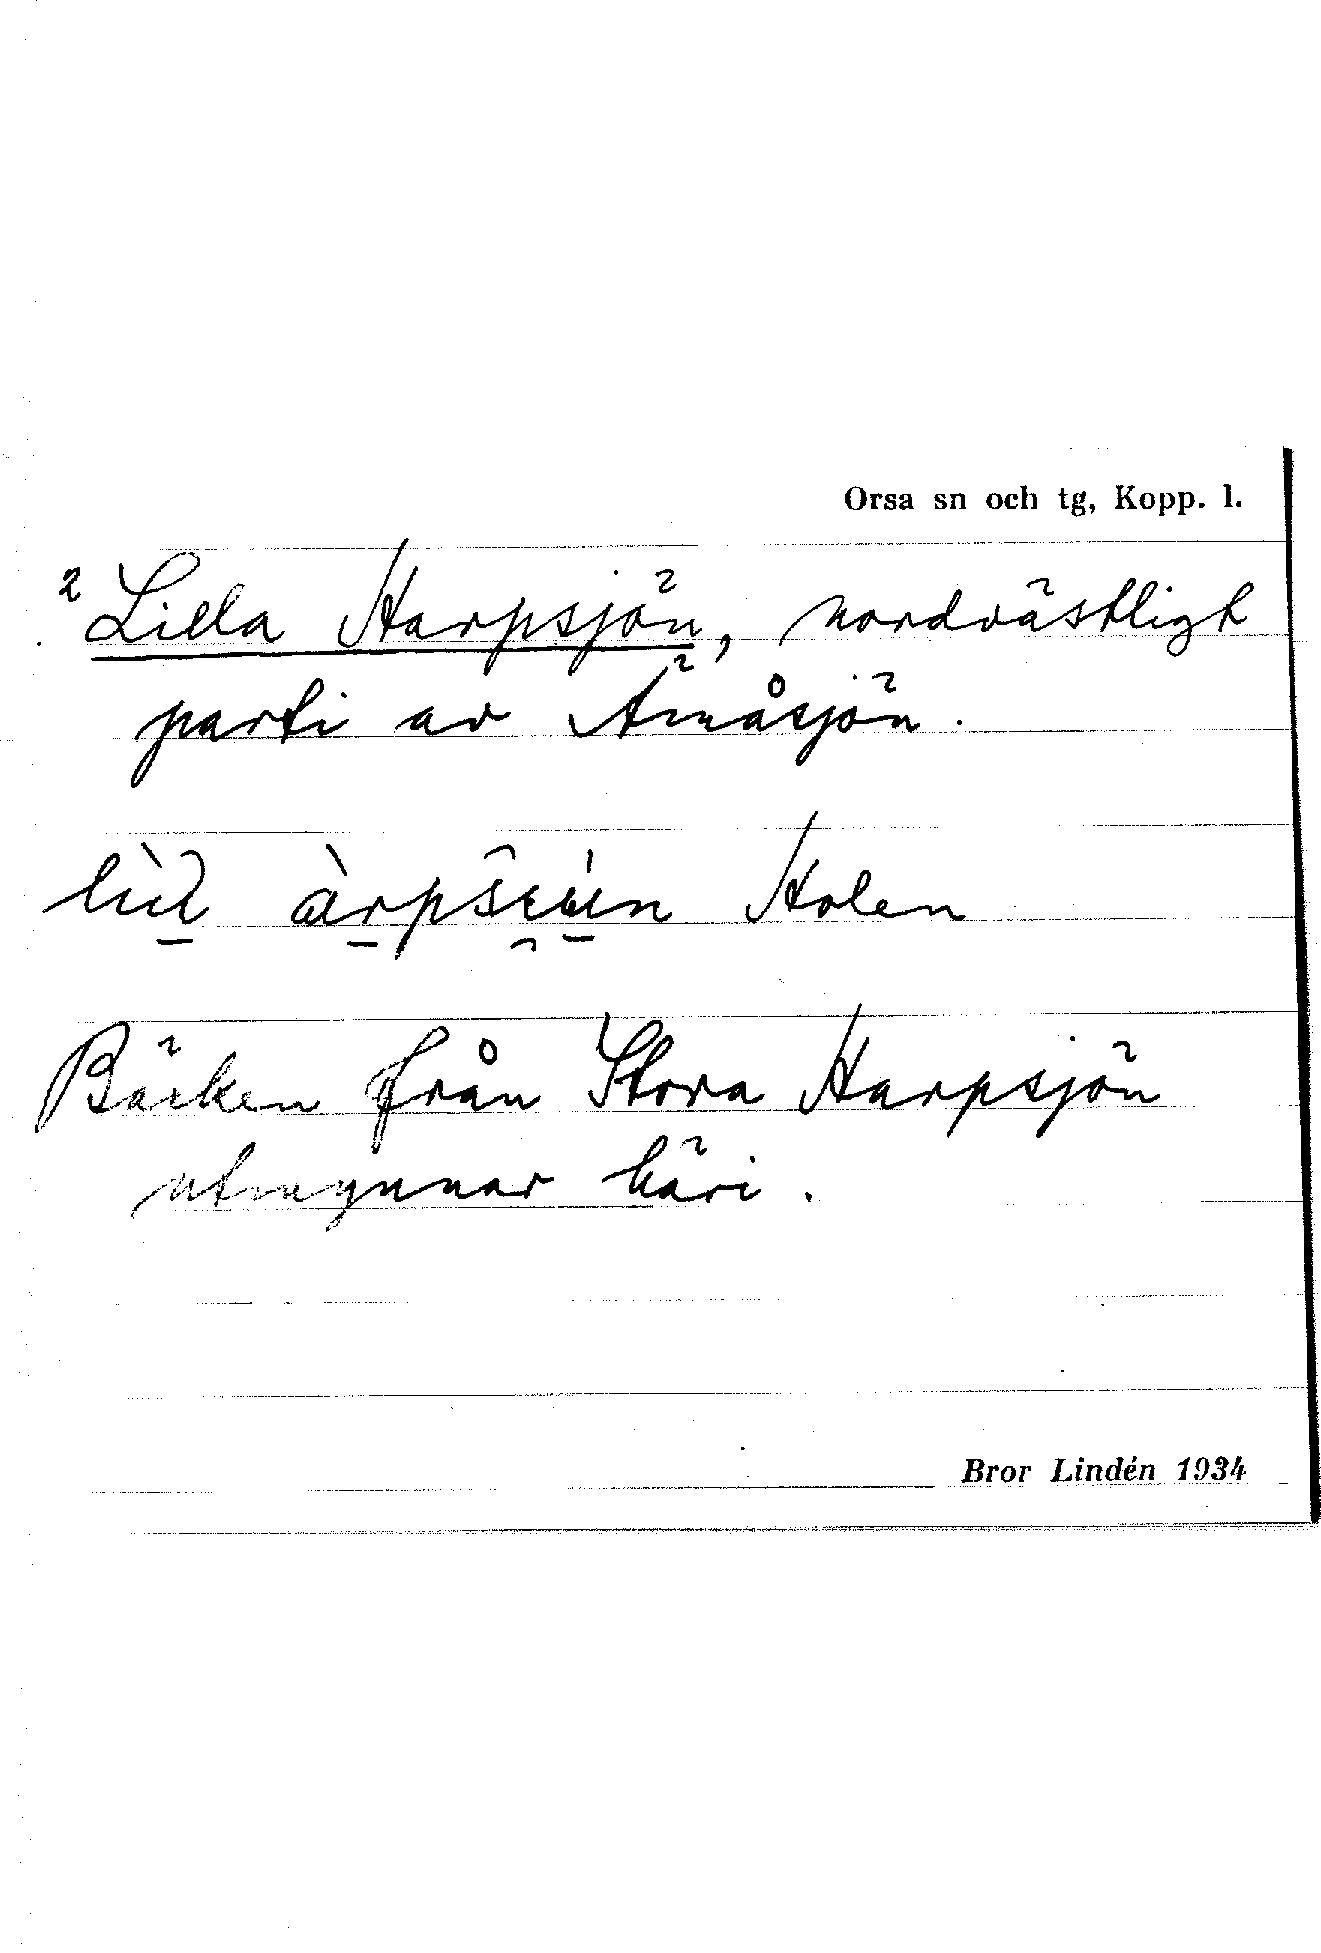 Orsa sn och tg, Kopp. l.
2 Lilla Harpsjön, nordvästligt
parti av Ämåsjön.
Holen
Bäcken från Stora Harpsjön
utmynnar häri.
Bror Lindén 1934